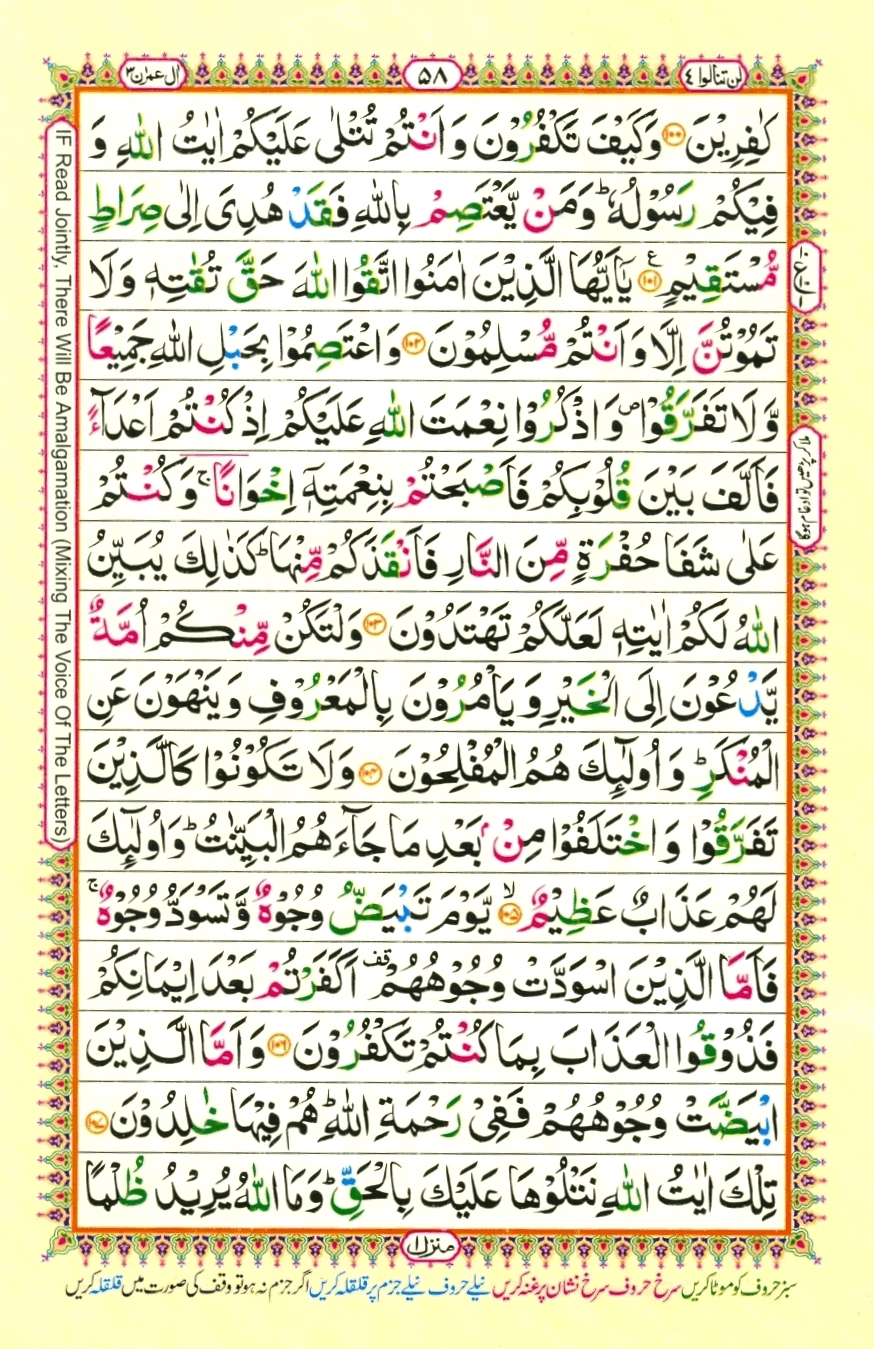 اٰل عمرٰن ٣
٥٨
لن تنالوا ٤
كٰفِرِيْنَ ﴿١٠٠﴾ وَكَيْفَ تَكْفُرُوْنَ وَ اَنْتُمْ تُتْلٰى عَلَيْكُمْ اٰيٰتُ اللّٰهِ وَ
فِيْكُمْ رَسُوْلُهٗ ؕ وَمَنْ يَّعْتَصِمْ بِاللّٰهِ فَقَدْ هُدِىَ اِلٰى صِرَاطٍ
مُّسْتَقِيْمٍ ﴿١٠١﴾ ع يٰۤاَيُّهَا الَّذِيْنَ اٰمَنُوا اتَّقُوا اللّٰهَ حَقَّ تُقٰتِهٖ وَلَا
تَمُوْتُنَّ اِلَّا وَ اَنْتُمْ مُّسْلِمُوْنَ ﴿١٠٢﴾ وَاعْتَصِمُوْا بِحَبْلِ اللّٰهِ جَمِيْعًا
وَّلَا تَفَرَّقُوْا ۪ وَ اذْكُرُوْا نِعْمَتَ اللّٰهِ عَلَيْكُمْ اِذْ كُنْتُمْ اَعْدَآءً
فَاَلَّفَ بَيْنَ قُلُوْبِكُمْ فَاَصْبَحْتُمْ بِنِعْمَتِهٖۤ اِخْوَانًا ۚ وَكُنْتُمْ
عَلٰى شَفَا حُفْرَةٍ مِّنَ النَّارِ فَاَنْقَذَكُمْ مِّنْهَا ؕ كَذٰلِكَ يُبَيِّنُ
اللّٰهُ لَكُمْ اٰيٰتِهٖ لَعَلَّكُمْ تَهْتَدُوْنَ ﴿١٠٣﴾ وَلْتَكُنْ مِّنْكُمْ اُمَّةٌ
يَّدْعُوْنَ اِلَى الْخَيْرِ وَ يَاْمُرُوْنَ بِالْمَعْرُوْفِ وَ يَنْهَوْنَ عَنِ
الْمُنْكَرِ ؕ وَ اُولٰٓئِكَ هُمُ الْمُفْلِحُوْنَ ﴿١٠٤﴾ وَلَا تَكُوْنُوْا كَالَّذِيْنَ
تَفَرَّقُوْا وَ اخْتَلَفُوْا مِنْۢ بَعْدِ مَا جَآءَ هُمُ الْبَيِّنٰتُ ؕ وَ اُولٰٓئِكَ
لَهُمْ عَذَابٌ عَظِيْمٌ ۙ﴿١٠٥﴾ يَّوْمَ تَبْيَضُّ وُجُوْهٌ وَّ تَسْوَدُّ وُجُوْهٌ ۚ
فَاَمَّا الَّذِيْنَ اسْوَدَّتْ وُجُوْهُهُمْ قف اَكَفَرْتُمْ بَعْدَ اِيْمَانِكُمْ
فَذُوْقُوا الْعَذَابَ بِمَا كُنْتُمْ تَكْفُرُوْنَ ﴿١٠٦﴾ وَ اَمَّا الَّذِيْنَ
ابْيَضَّتْ وُجُوْهُهُمْ فَفِىْ رَحْمَةِ اللّٰهِ ؕ هُمْ فِيْهَا خٰلِدُوْنَ ﴿١٠٧﴾
تِلْكَ اٰيٰتُ اللّٰهِ نَتْلُوْهَا عَلَيْكَ بِالْحَقِّ ؕ وَمَا اللّٰهُ يُرِيْدُ ظُلْمًا
منزل ١
سبز حروف کو موٹا کریں سرخ حروف سرخ نشان پر غنہ کریں نیلے حروف نیلے جزم پر قلقلہ کریں اگر جزم نہ ہو تو وقف کی صورت میں قلقلہ کریں
ملا کر پڑھیں تو ادغام ہوگا
IF Read Jointly, There Will Be Amalgamation (Mixing The Voice Of The Letters)